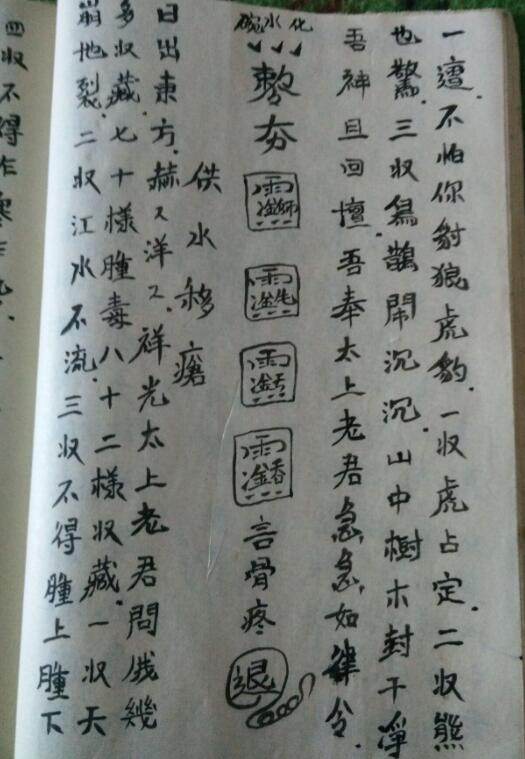 一遭.不怕你豺狼虎豹.一收虎占定.二收熊
也驚.三收烏鵲鬧沉沉.山中樹木封干淨
吾神且回壇.吾奉太上老君急急如律令.
碗水化
敕
骨疼
退
供水移瘡
日出東方.赫又洋又.祥光太上老君問俄幾
多収藏.七十樣腫毒八十二樣収藏.一収天
崩地裂.二収江水不流.三収不得腫上腫下
四収不得作